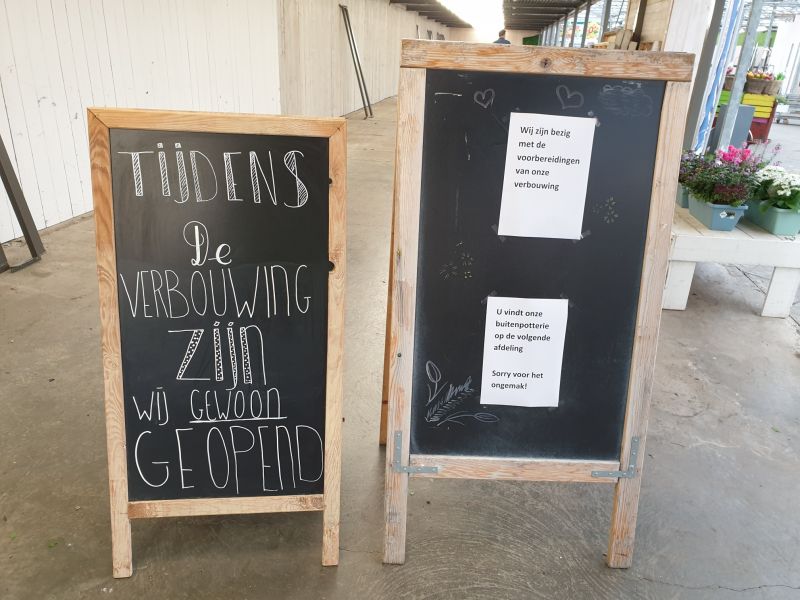 TIJDENS
De
VERBOUWING
ZIJN
WIJ GEWOON
GEOPEND
Wij zijn bezig
met de
voorbereidingen
van onze
verbouwing
U vindt onze
buitenpotterie
op de volgende
afdeling
Sorry voor het
ongemak!